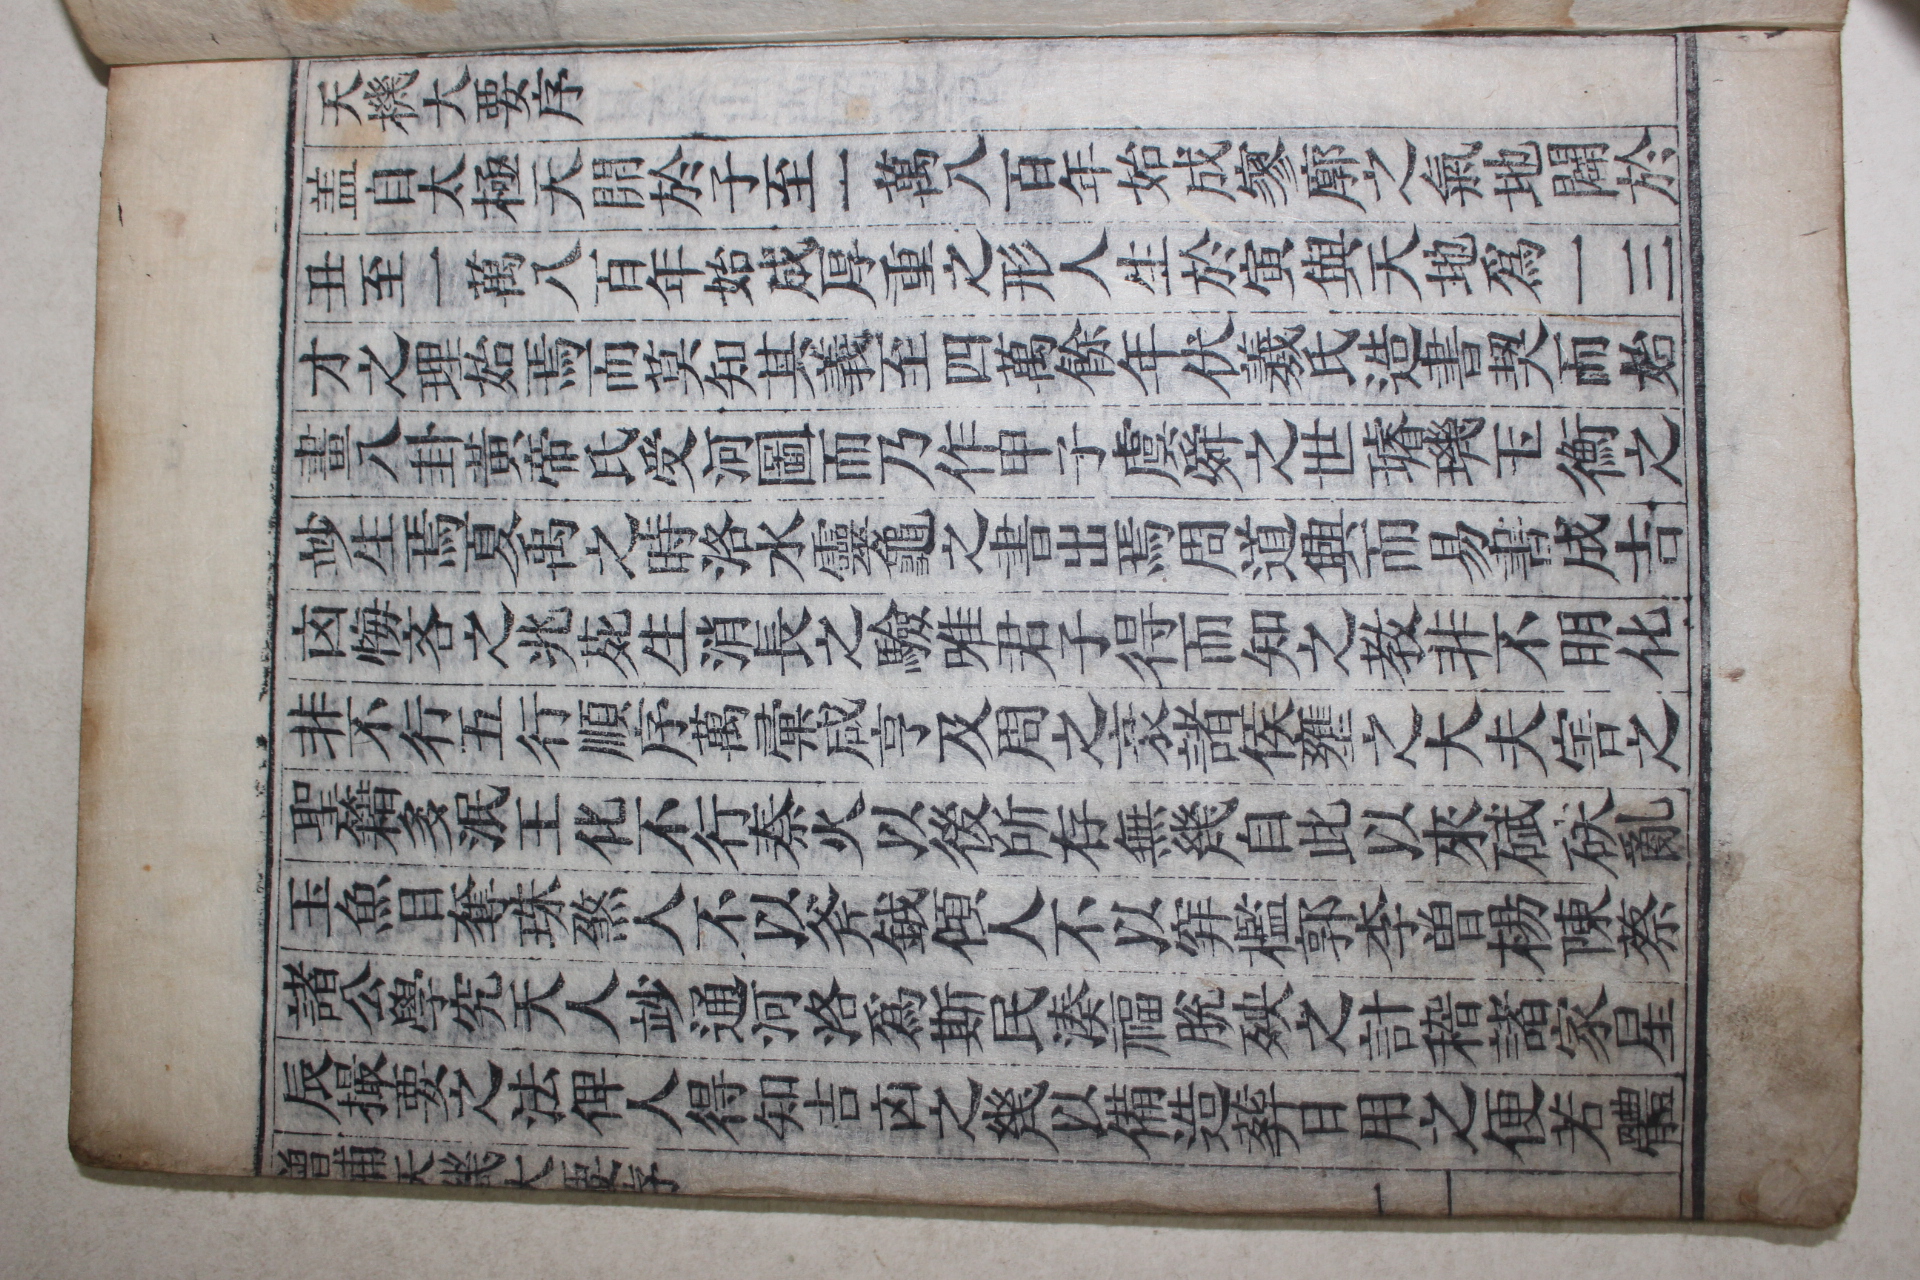 天機大要序
盖自太極天開於子至一萬八百年始成寥廓之氣地闢於
丑至一萬八百年始成厚重之形人生於寅與天地爲一三
才之理始焉而莫知其義至四萬餘年伏羲氏造書契而始
畫八卦黃帝氏受河圖而乃作甲子虞舜之世璿璣玉衡之
玅生焉夏禹之時洛水靈龜之書出焉周道興而易書成吉
凶悔吝之兆死生消長之驗唯君子得而知之教非不明化
非不行五行順序萬彙咸亨及周之衰諸侯壅之大夫害之
聖籍多泯王化不行秦火以後所存無幾自此以來碔砆亂
玉魚目奪珠煞人不以斧鉞傾人不以穽檻郭李曾楊陳蔡
諸公學究天人玅通河洛爲斯民湊福脫殃之計稽諸家星
辰撮要之法俾人得知吉凶之幾以備造葬日用之便若體
增補天機大要序 一